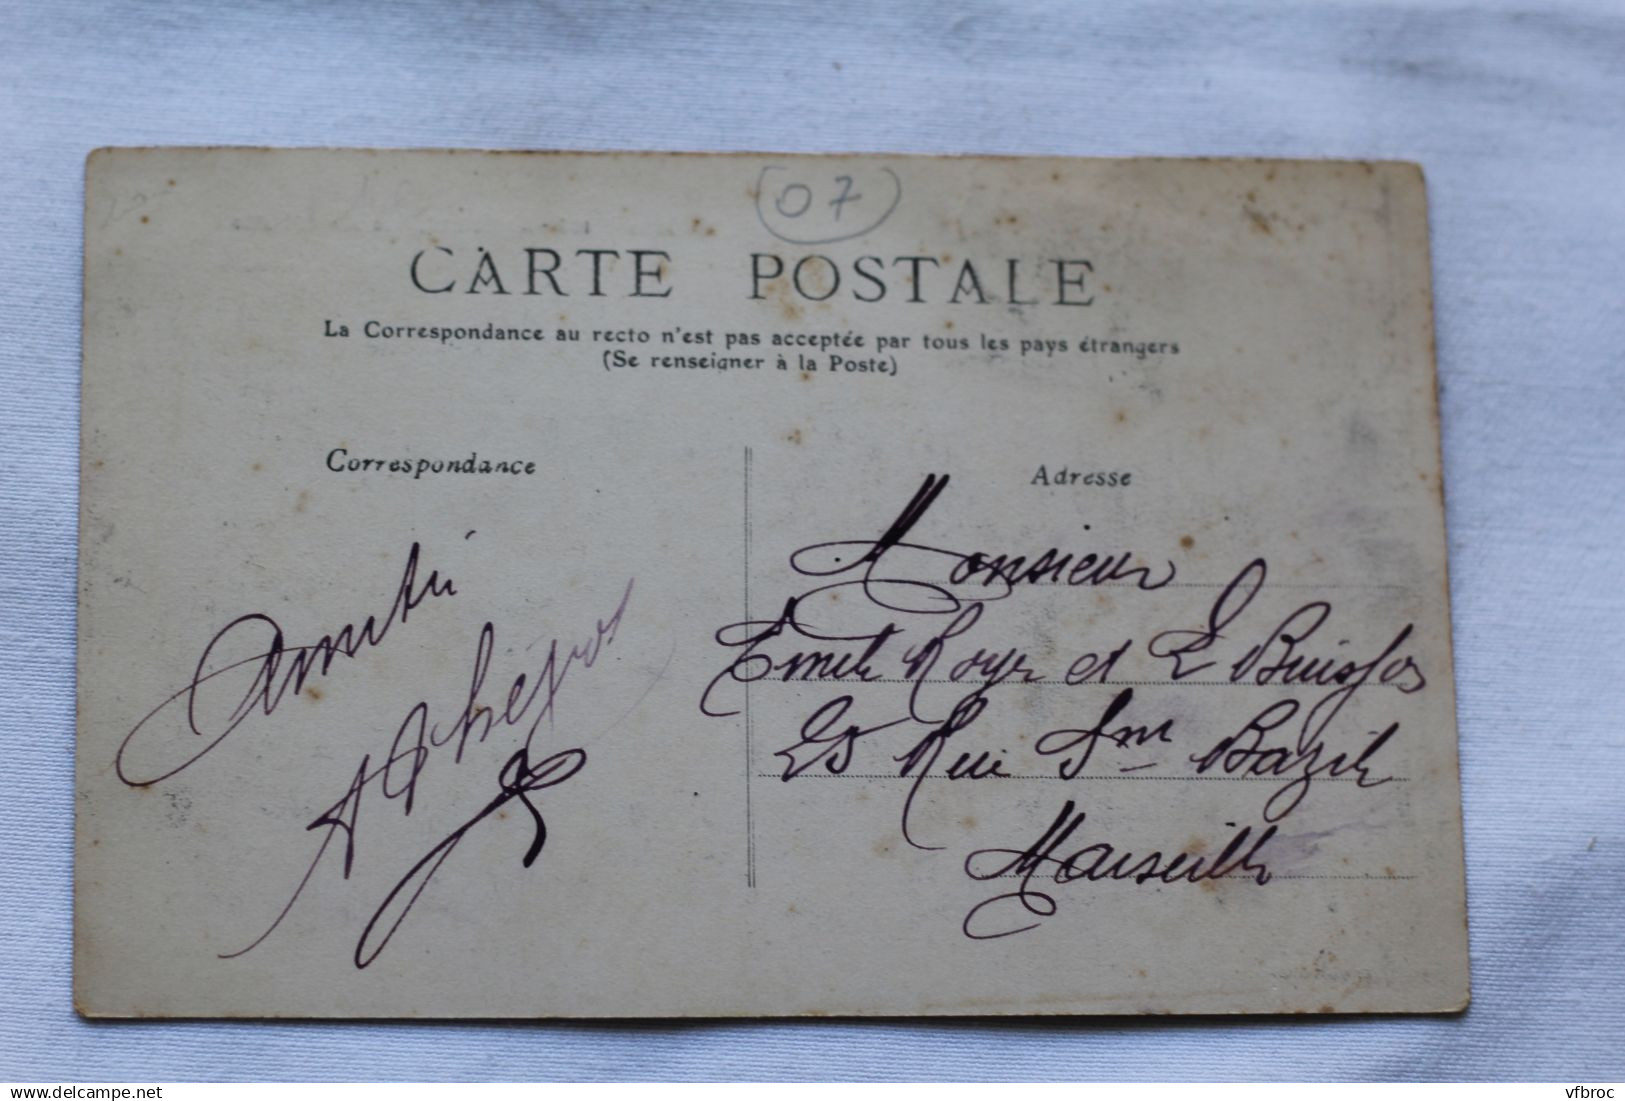 (07)
CARTE POSTALE
La Correspondance au recto n'est pas acceptée par tous les pays étrangers
(Se renseigner à la Poste)
Correspondance
Adresse
Monsieur
Emile Roye et E Buisson
25 Rue Bazile
Marseille
vfbroc